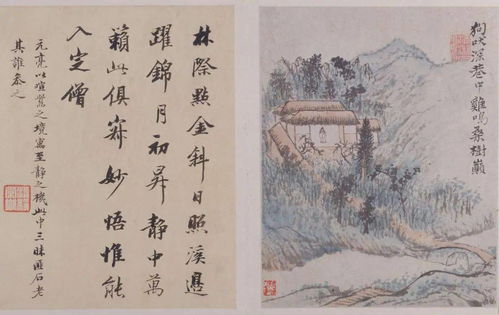 狗吠深巷中雞鳴桑樹巔
林際點金斜日照溪邊
躍錦月初昇靜中萬
籟此俱寂妙悟惟能
入定僧
元亮以喧之境寓至靜之機此中三昧匪石老
其誰參之